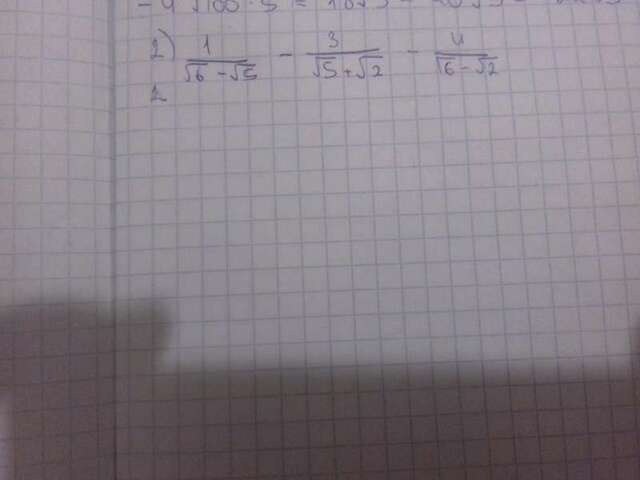 - 4√100·5 =
2) 1/(√6 - √5) - 3/(√5 + √2) - 4/(√6 - √2)